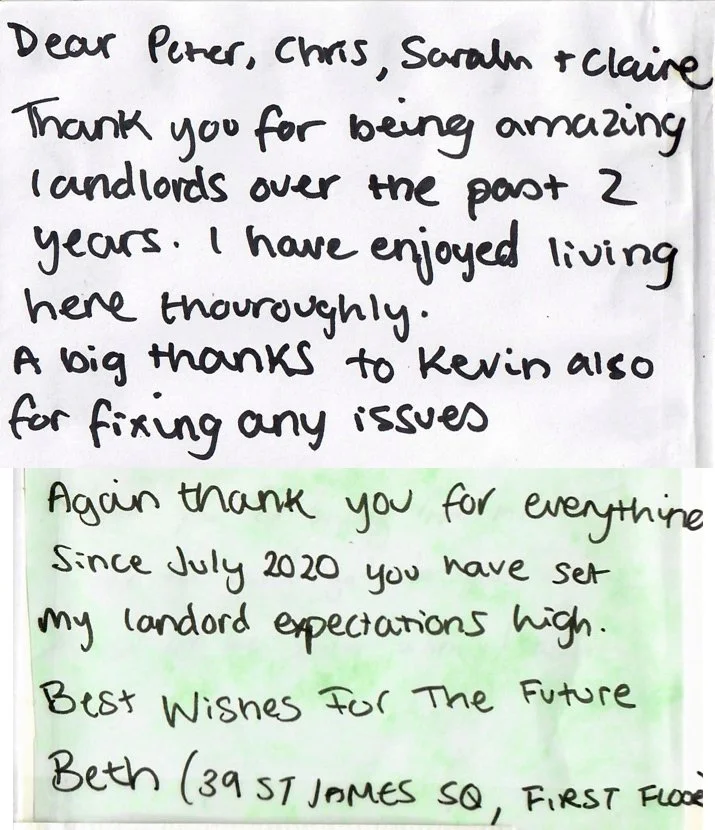 Dear Peter, Chris, Sarah + Claire
Thank you for being amazing
landlords over the past 2
years. I have enjoyed living
here thouroughly.
A big thanks to Kevin also
for fixing any issues
Again thank you for everything
Since July 2020 you have set
my landord expectations high.
Best Wishes For The Future
Beth (39 ST JAMES SQ, FIRST FLOOR